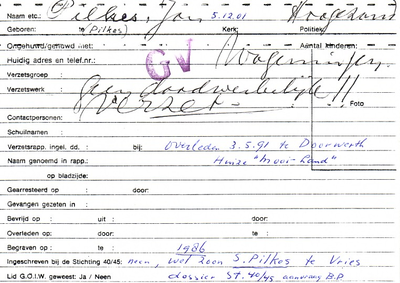 Naam etc.: Pilkes, Jan 5.12.01 Hoogezand
Geboren: te (Pilkes) Kerk: Politiek:
Ongehuwd/gehuwd met: Aantal kinderen:
Huidig adres en telef.nr.: GV Wageningen.
Verzetsgroep :
Verzetswerk : Geen daadwerkelijk !!
verzet - Foto
Contactpersonen:
Schuilnamen :
Verzetsrapp. ingel. dd. : bij: Overleden 3.5.91 te Doorwerth
Naam genoemd in rapp.: Huize "Mooi-Land"
op bladzijde:
Gearresteerd op : door:
Gevangen gezeten in :
Bevrijd op : uit : door:
Overleden op: te: door:
Begraven op : te : 1986
Ingeschreven bij de Stichting 40/45: neen, wel zoon S. Pilkes te Vries
Lid G.O.I.W. geweest: Ja / Neen dossier St. 40/45 aanvraag B.P